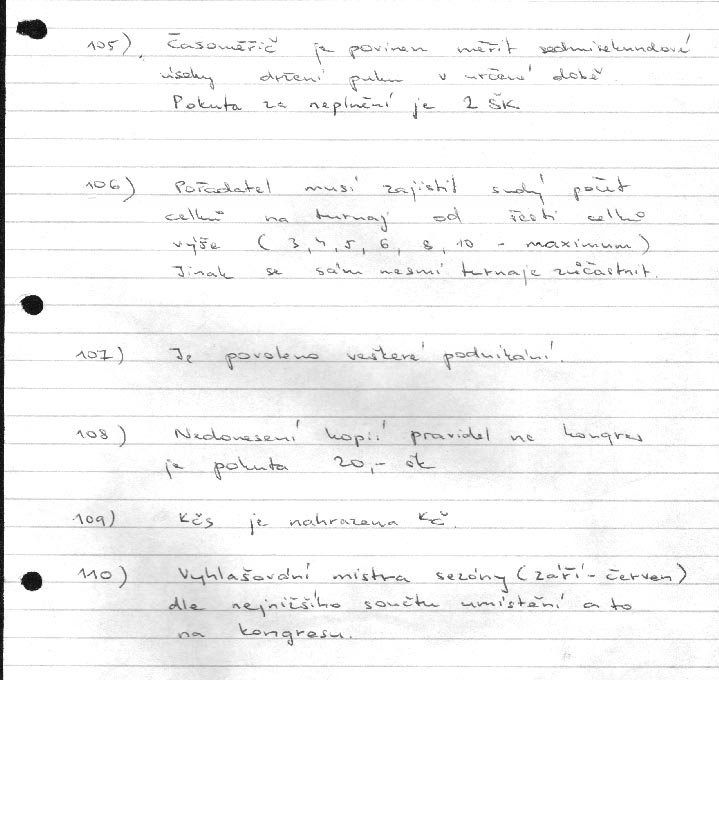 105) Časoměřič je povinen měřit sedmisekundové
úseky držení puku v určené době.
Pokuta za neplnění je 2 ŠK
106) Pořadatel musí zajistit sudý počet
celků na turnaj od šesti celků
výše ( 3, 4, 5, 6, 8, 10 - maximum )
Jinak se sám nesmí turnaje zůčastnit.
107) Je povoleno veškeré podnikání.
108) Nedonesení kopií pravidel na kongres
je pokuta 20,- šk
109) Kčs je nahrazena Kč.
110) Vyhlašování mistra sezóny (září - červen)
dle nejnižšího součtu umístění a to
na kongresu.